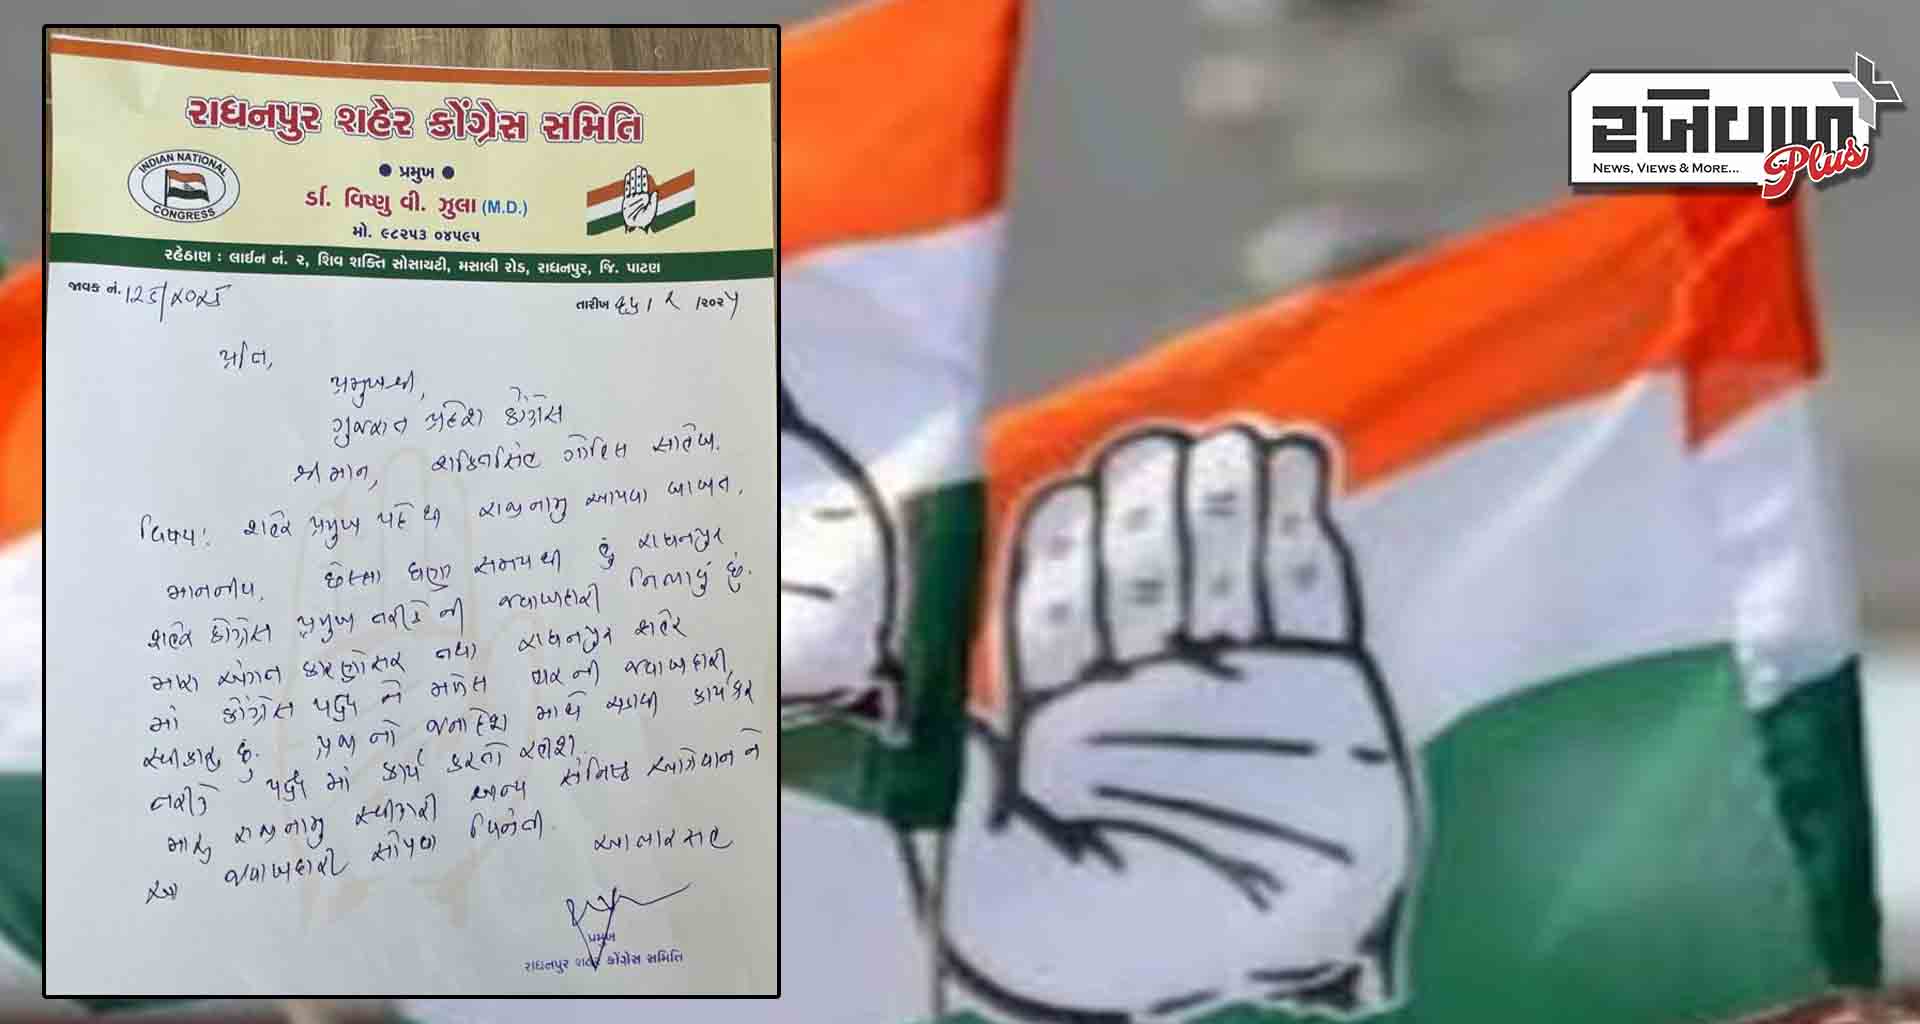 રાધનપુર શહેર કોંગ્રેસ સમિતિ
INDIAN NATIONAL CONGRESS
● પ્રમુખ ●
ર્ડા. વિષ્ણુ વી. ઝુલા (M.D.)
મો. ૯૮૨૫૩ ૦૪૫૯૫
રહેઠાણ : લાઈન નં. ૨, શિવ શક્તિ સોસાયટી, મસાલી રોડ, રાધનપુર, જિ. પાટણ
જાવક નં.
તારીખ / ૨ /૨૦૨૫
પ્રતિ,
પ્રમુખશ્રી,
ગુજરાત પ્રદેશ કોંગ્રેસ
શ્રીમાન, શક્તિસિંહ ગોહિલ સાહેબ.
વિષય: શહેર પ્રમુખ પદે થી રાજીનામુ આપવા બાબત.
માનનીય, છેલ્લા ઘણા સમયથી હું રાધનપુર
શહેર કોંગ્રેસ પ્રમુખ તરીકે ની જવાબદારી નિભાવું છું.
મારા અંગત કારણોસર તથા રાધનપુર શહેર
માં કોંગ્રેસ પક્ષ ને મળેલ હાર ની જવાબદારી
સ્વીકારું છું. પ્રજા નો જનાદેશ માથે ચડાવી કાર્યકર
તરીકે પક્ષ માં કાર્ય કરતો રહીશ.
મારું રાજીનામુ સ્વીકારી અન્ય સંનિષ્ઠ આગેવાન ને
આ જવાબદારી સોંપવા વિનંતી.
આભારસહ
પ્રમુખ
રાધનપુર શહેર કોંગ્રેસ સમિતિ
રખેવાળ
Plus
NEWS, VIEWS & MORE...